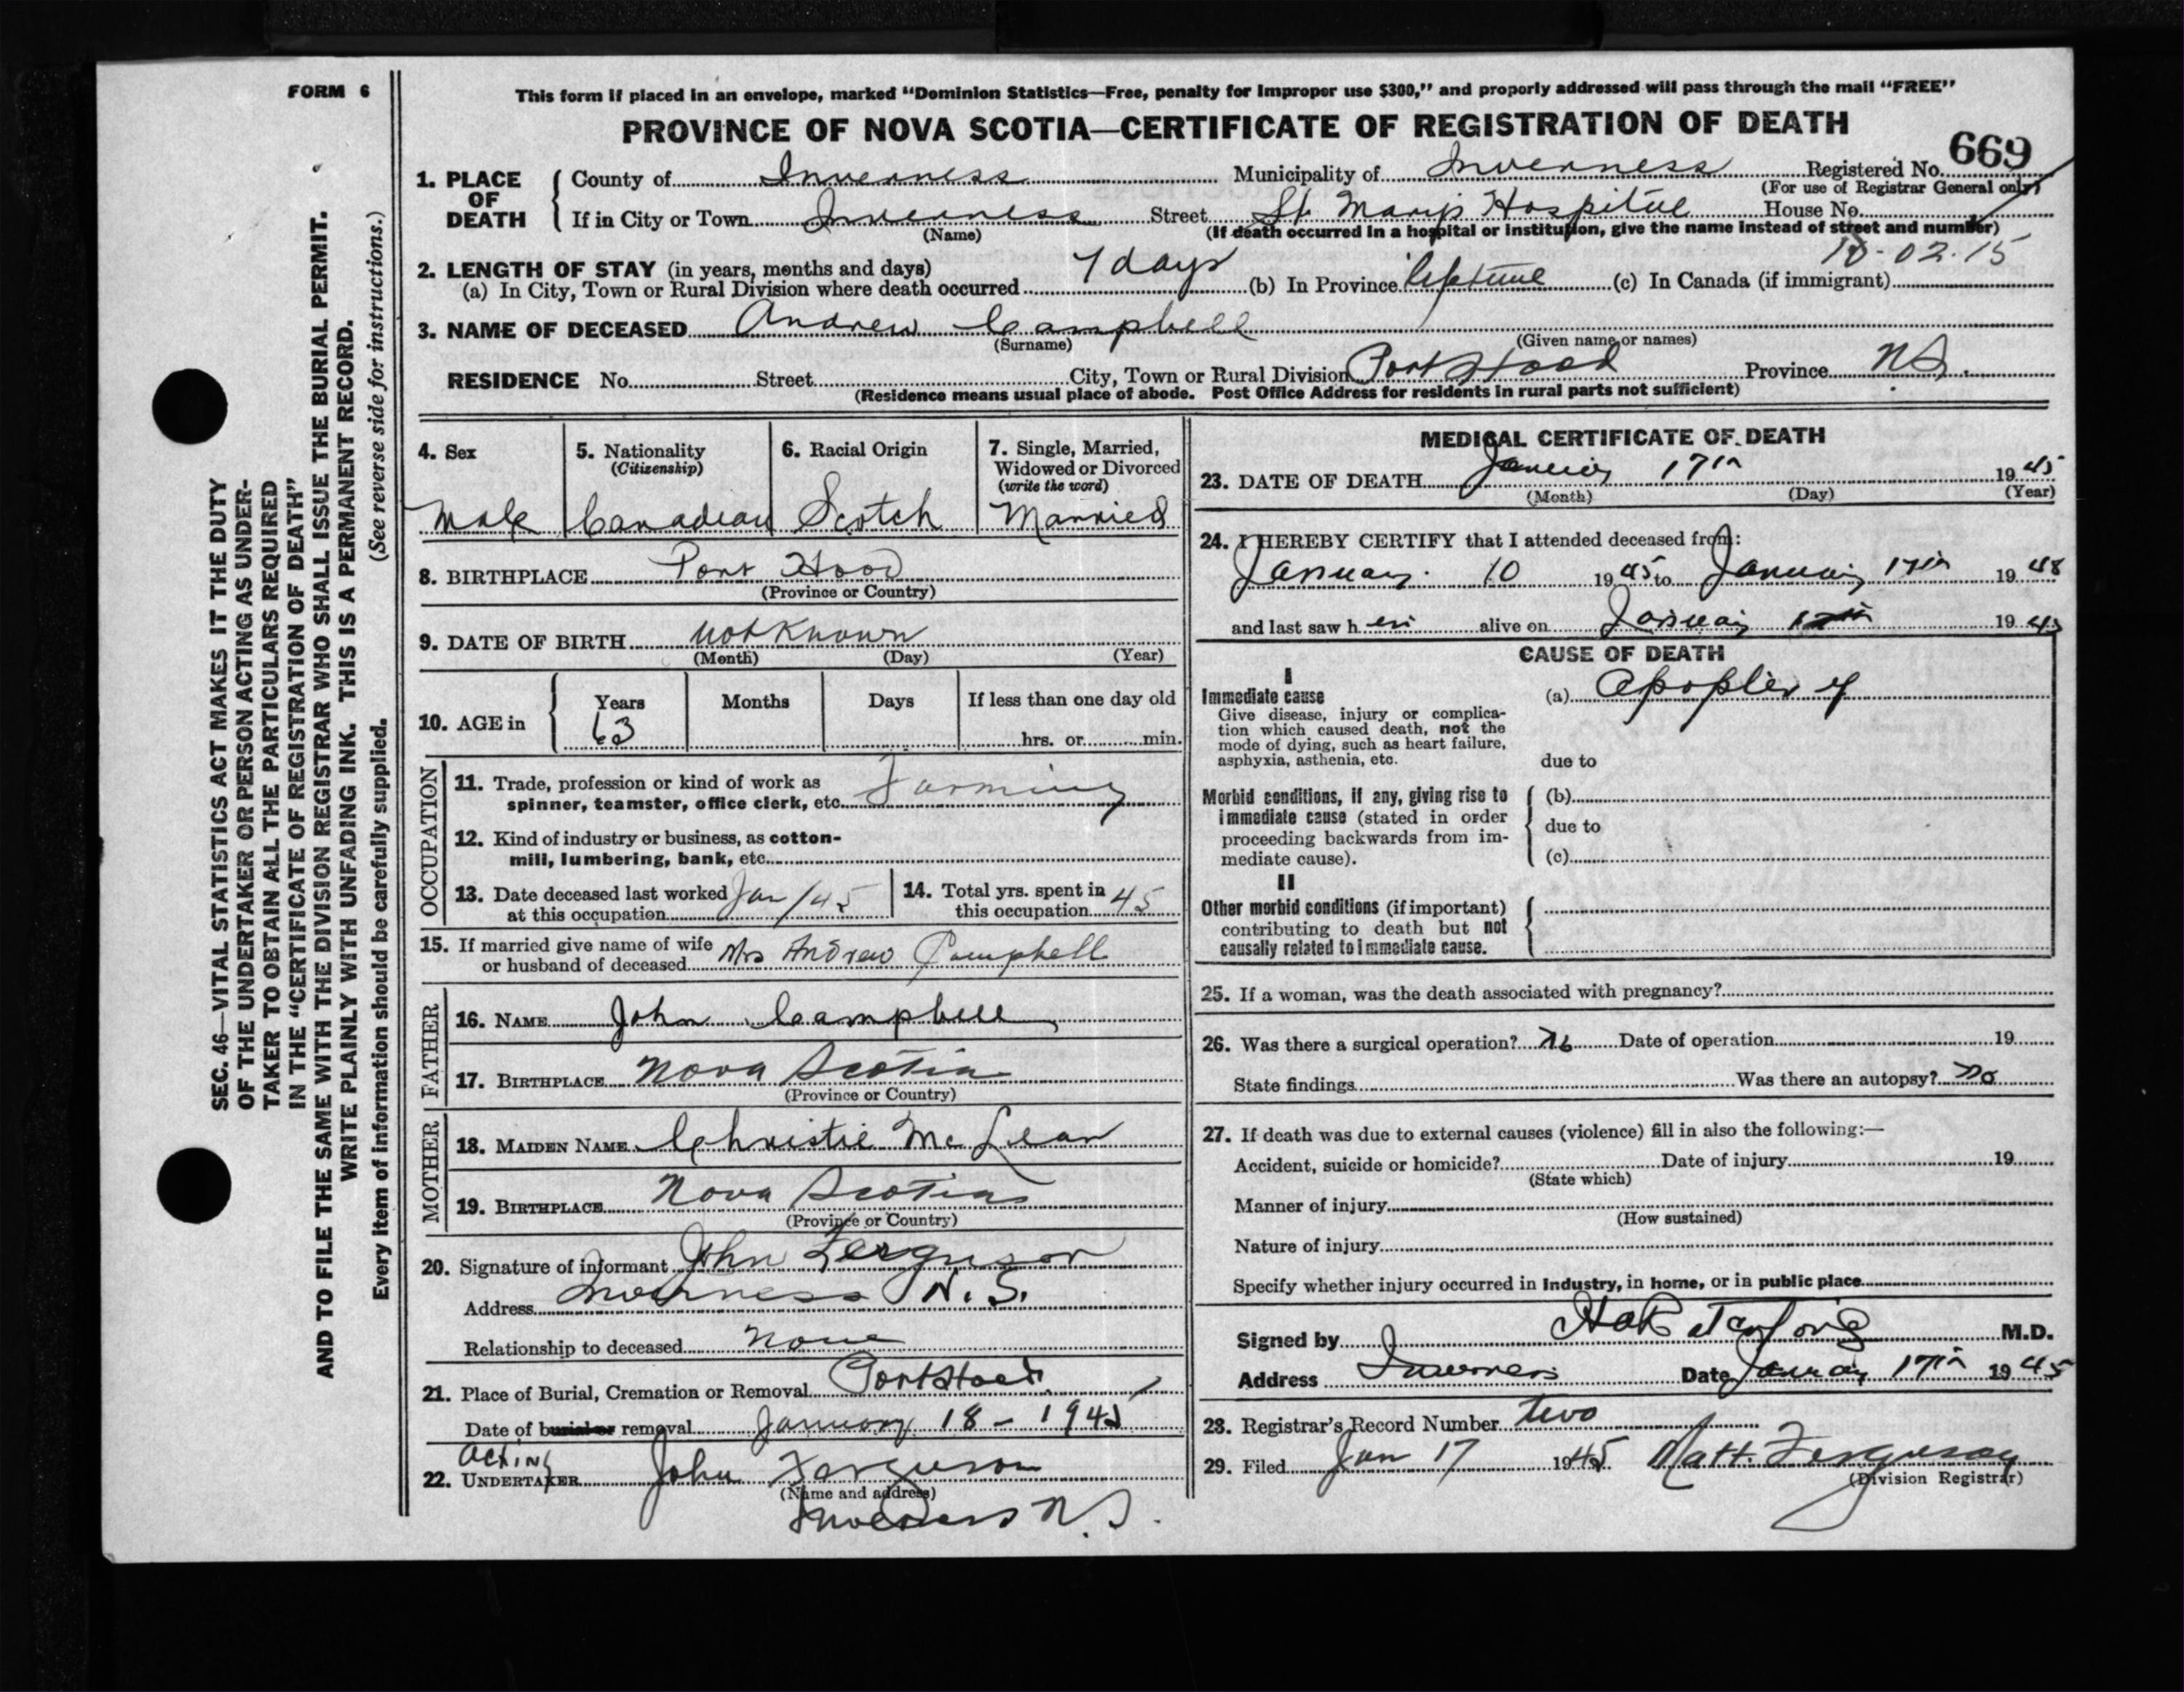 FORM 6
This form if placed in an envelope, marked "Dominion Statistics—Free, penalty for improper use $300," and properly addressed will pass through the mail "FREE"
PROVINCE OF NOVA SCOTIA—CERTIFICATE OF REGISTRATION OF DEATH
SEC. 46—VITAL STATISTICS ACT MAKES IT THE DUTY
OF THE UNDERTAKER OR PERSON ACTING AS UNDER-
TAKER TO OBTAIN ALL THE PARTICULARS REQUIRED
IN THE "CERTIFICATE OF REGISTRATION OF DEATH"
AND TO FILE THE SAME WITH THE DIVISION REGISTRAR WHO SHALL ISSUE THE BURIAL PERMIT.
WRITE PLAINLY WITH UNFADING INK. THIS IS A PERMANENT RECORD.
Every item of information should be carefully supplied. (See reverse side for instructions.)
1. PLACE OF DEATH County of Inverness Municipality of Inverness Registered No. 669
(For use of Registrar General only)
If in City or Town Inverness Street St. Mary's Hospital House No.
(Name) (If death occurred in a hospital or institution, give the name instead of street and number)
-02-15
2. LENGTH OF STAY (in years, months and days)
(a) In City, Town or Rural Division where death occurred 7 days (b) In Province lifetime (c) In Canada (if immigrant)
3. NAME OF DECEASED Andrew Campbell
(Surname) (Given name or names)
RESIDENCE No. Street City, Town or Rural Division Port Hood Province N.S.
(Residence means usual place of abode. Post Office Address for residents in rural parts not sufficient)
4. Sex Male
5. Nationality (Citizenship) Canadian
6. Racial Origin Scotch
7. Single, Married, Widowed or Divorced (write the word) Married
8. BIRTHPLACE Port Hood
(Province or Country)
9. DATE OF BIRTH not known
(Month) (Day) (Year)
10. AGE in Years 63 Months Days If less than one day old hrs. or min.
OCCUPATION
11. Trade, profession or kind of work as
spinner, teamster, office clerk, etc. Farming
12. Kind of industry or business, as cotton-
mill, lumbering, bank, etc.
13. Date deceased last worked at this occupation Jan/45
14. Total yrs. spent in this occupation 45
15. If married give name of wife
or husband of deceased Mrs Andrew Campbell
FATHER
16. NAME John Campbell
17. BIRTHPLACE Nova Scotia
(Province or Country)
MOTHER
18. MAIDEN NAME Christie McLean
19. BIRTHPLACE Nova Scotia
(Province or Country)
20. Signature of informant John Ferguson
Address Inverness N.S.
Relationship to deceased None
21. Place of Burial, Cremation or Removal Port Hood
Date of burial or removal January 18 - 1945
Acting
22. UNDERTAKER John Ferguson
(Name and address)
Inverness N.S.
MEDICAL CERTIFICATE OF DEATH
23. DATE OF DEATH January 17th 1945
(Month) (Day) (Year)
24. I HEREBY CERTIFY that I attended deceased from:
January 10 1945 to January 17th 19
and last saw h alive on January 17th 1945
CAUSE OF DEATH
I
Immediate cause (a) Apoplexy
Give disease, injury or complica-
tion which caused death, not the
mode of dying, such as heart failure,
asphyxia, asthenia, etc. due to
Morbid conditions, if any, giving rise to (b)
immediate cause (stated in order due to
proceeding backwards from im-
mediate cause). (c)
II
Other morbid conditions (if important)
contributing to death but not
causally related to immediate cause.
25. If a woman, was the death associated with pregnancy?
26. Was there a surgical operation? No Date of operation 19
State findings Was there an autopsy? No
27. If death was due to external causes (violence) fill in also the following:—
Accident, suicide or homicide? Date of injury 19
(State which)
Manner of injury
(How sustained)
Nature of injury
Specify whether injury occurred in Industry, in home, or in public place
Signed by M.D.
Address Inverness Date January 17th 1945
28. Registrar's Record Number two
29. Filed Jan 17 1945 Matt. Ferguson
(Division Registrar)